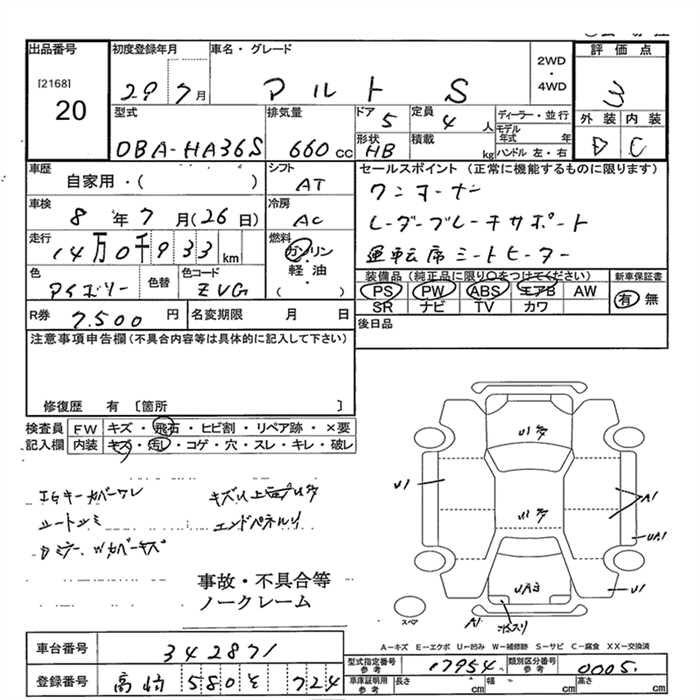 出品番号 初度登録年月 車名・グレード 評価点
[2168] 20 29 7月 アルト S 2WD・4WD 3
型式 排気量 ドア 5 定員 4人 ディーラー・並行 外装 内装
DBA-HA36S 660cc 形状 HB 積載 kg モデル年式 年 D C
ハンドル 左・右
車歴 シフト セールスポイント (正常に機能するものに限ります)
自家用・( ) AT ワンオーナー
車検 8年7月(26日) 冷房 AC レーダーブレーキサポート
走行 14万0千933km 燃料 ガソリン・軽油・( ) 運転席シートヒーター
色 アイボリー 色替 色コード ZVG 装備品 (純正品に限り○をつけてください) 新車保証書
PS PW ABS エアB AW 有 無
SR ナビ TV カワ
R券 7.500円 名変期限 月 日 後日品
注意事項申告欄 (不具合内容等は具体的に記入して下さい)
修復歴 有 〔箇所 〕
検査員 FW キズ・飛石・ヒビ割・リペア跡・×要
記入欄 内装 キズ・汚レ・コゲ・穴・スレ・キレ・破レ
シートシミ エンドパネルU
事故・不具合等
ノークレーム
U1 A1 UA1 U1 A1 UA3
スペア
A-キズ E-エクボ U-凹み W-補修跡 S-サビ C-腐食 XX-交換済
車台番号 342871
登録番号 高崎 580 そ 724
型式指定番号 参考 17954 類別区分番号 参考 0005
車庫証明用 参考 長さ cm 幅 cm 高さ cm